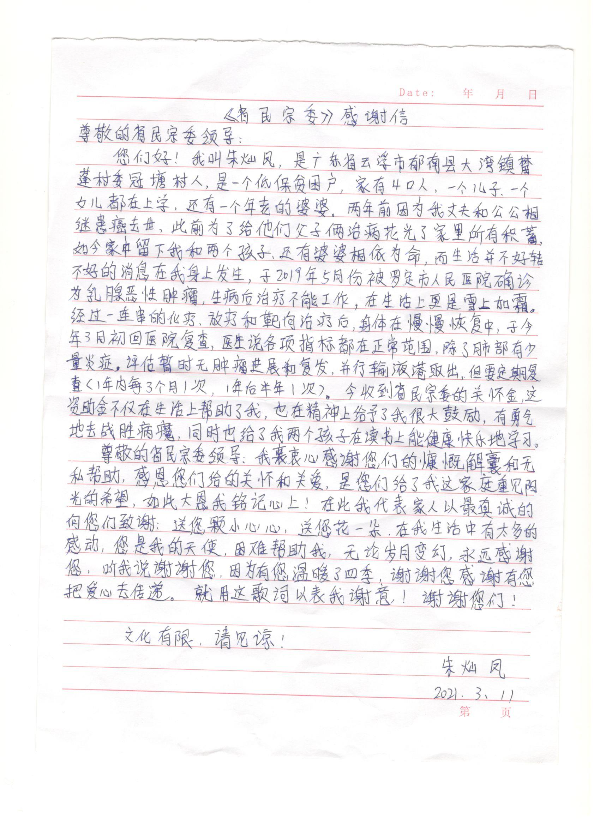 Date: 年 月 日
《省民宗委》感谢信
尊敬的省民宗委领导:
您们好！我叫朱灿凤，是广东省云浮市郁南县大湾镇
蓬村委冠塘村人，是一个低保贫困户，家有4口人，一个儿子、一个
女儿都在上学，还有一个年老的婆婆。两年前因为我丈夫和公公相
继患癌去世、此前为了给他们父子俩治病花光了家里所有积蓄，
如今家中留下我和两个孩子、还有婆婆相依为命，而生活并不好转
不好的消息在我身上发生，于2019年5月份被罗定市人民医院确诊
为乳腺恶性肿瘤，生病后治疗不能工作，在生活上更是雪上如霜。
经过一连串的化疗、放疗和靶向治疗后，身体在慢慢恢复中，于今
年3月初回医院复查，医生说各项指标都在正常范围，除了肺部有少
量炎症。评估暂时无肿瘤进展和复发，并行输液港取出，但要定期复
查（1年内每3个月1次，1年后半年1次）。今收到省民宗委的关怀金，这
资助金不仅在生活上帮助了我，也在精神上给予了我很大鼓励，有勇气
地去战胜病魔，同时也给了我两个孩子在读书上能健康快乐地学习。
尊敬的省民宗委领导：我衷衷心感谢您们的慷慨解囊和无
私帮助，感恩您们给的关怀和关爱，是您们给了我这家庭重见阳
光的希望，如此大恩我铭记心上！在此我代表家人以最真诚的
向您们致谢：送您颗小心心，送您花一朵，在我生活中有太多的
感动，您是我的天使，困难帮助我，无论岁月变幻，永远感谢
您，听我说谢谢您，因为有您温暖了四季，谢谢您感谢有您
把爱心去传递。就用这歌词以表我谢意！谢谢您们！
文化有限，请见谅！
朱灿凤
2021.3.11
第 页